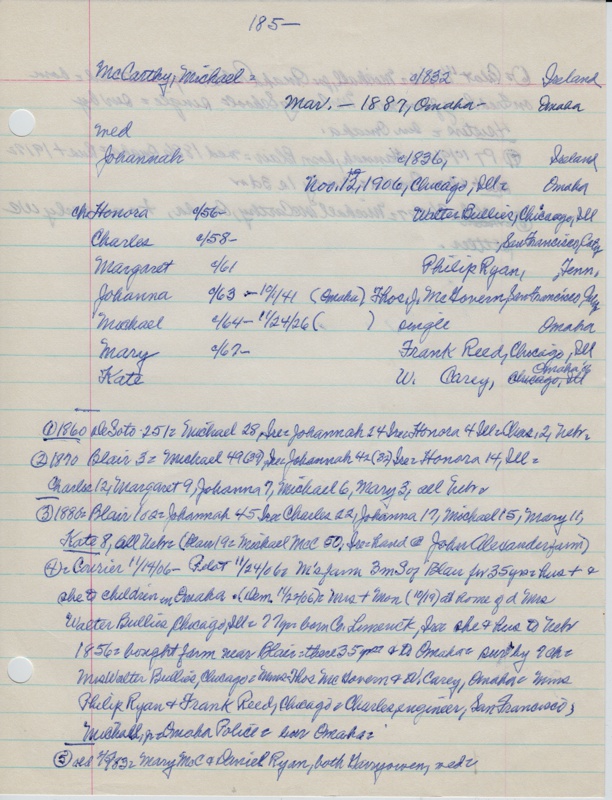 185-
McCarthy, Michael = c/1832 Ireland
Mar. - 1887, Omaha - Omaha
med
Johannah c/1836, Ireland
Nov. 12, 1906, Chicago, Ill = Omaha
ch Honora c/56- Walter Bullis, Chicago, Ill
Charles c/58- , San Francisco, Calif
Margaret c/61 Philip Ryan, Tenn,
Johanna c/63 - 10/1/41 (Omaha) Thos. J. McGovern, San Francisco,
Michael c/64- 11/24/26 ( ) single Omaha
Mary c/67- Frank Reed, Chicago, Ill
Kate W. Carey, Chicago, Ill Omaha
① 1860 DeSoto 251 = Michael 28, Ire = Johannah 24 Ire = Honora 4 Ill = Chas, 2, Nebr =
② 1870 Blair 3 = Michael 49 (39), Ire = Johannah 42 (32) Ire = Honora 14, Ill =
Charles 12, Margaret 9, Johanna 7, Michael 6, Mary 3, all Nebr
③ 1880 = Blair 102 = Johannah 45 Ire Charles 22, Johanna 17, Michael 15, Mary 11,
Kate 8, all Nebr = (Blair 19 = Michael McC 50, Ire = hand @ John Alexander farm)
④ = Courier 11/14/06 - Pilot 11/24/06 = farm 3 m S of Blair for 35 yrs = hus +
she to children in Omaha = (Dem. 11/22/06) = Mrs + Mon (11/19) at home of d Mrs
Walter Bullis, Chicago, Ill = 77 yrs born Co Limerick, Ire she & hus to Nebr
1856 = bought farm near Blair = there 35 yrs & to Omaha = surv by 7 ch =
Mrs Walter Bullis, Chicago = Mmes Thos McGovern & W Carey, Omaha = Mmes
Philip Ryan & Frank Reed, Chicago = Charles, engineer, San Francisco;
Michael, Omaha Police = bur Omaha =
⑤ 1883 = Mary McC & Daniel Ryan, both Garryowen, med =